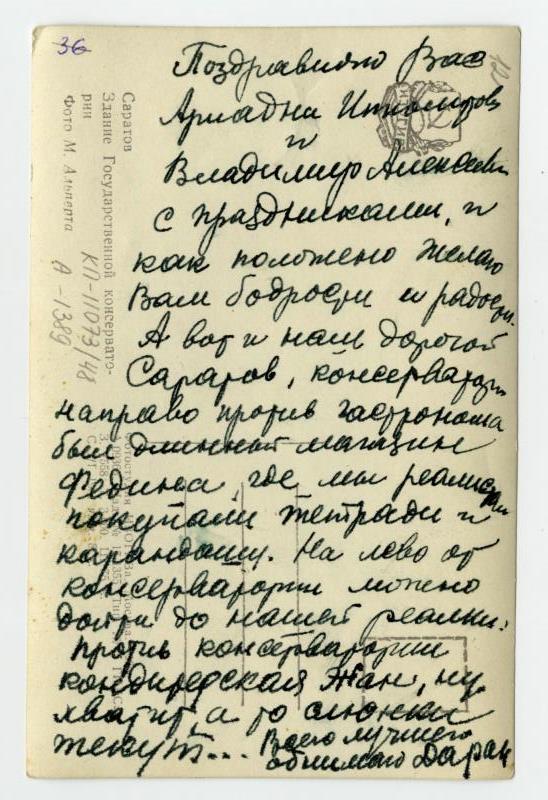 36
12
Поздравляю Вас
Ариадна Ипполитов
и
Владимир Алексееви
с праздниками, и
как положено желаю
Вам бодрости и радости.
А вот и наш дорогой
Саратов, консерватории
направо против гастронома
был длинный магазин
Федина, где мы реалисты
покупали тетради и
карандаши. На лево от
консерватории можно
дойти до нашей реалки.
против консерватории
кондитерская Жан, ну
хватит, а то слюнки
текут... Всего лучшего
обнимаю Даран
Саратов
Здание Государственной консервато-
рии
Фото М. Альперта
КП-11073/48
А-1389